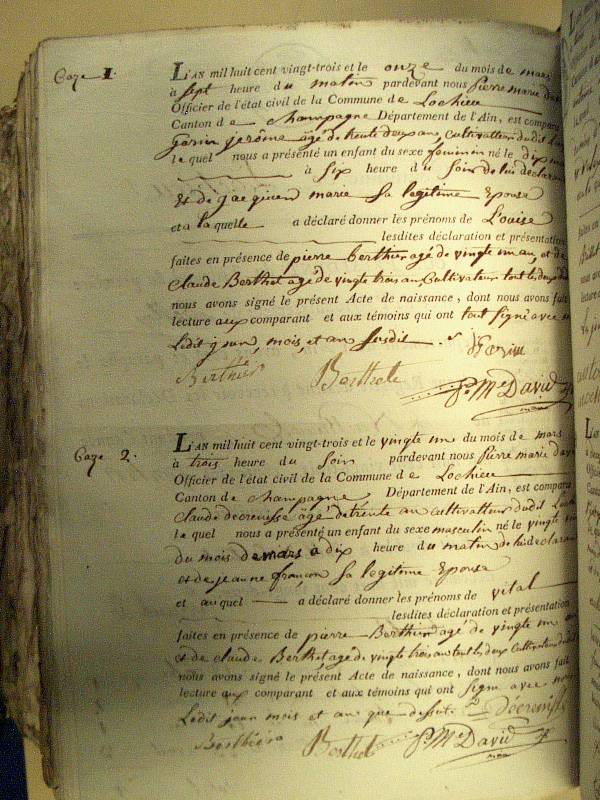 Caze 1.
L'AN mil huit cent vingt-trois et le onze du mois de mars
à sept heure du matin pardevant nous pierre marie
Officier de l'état civil de la Commune de Lochieu
Canton de Champagne Département de l'Ain, est comparu
jerôme âgé de trente deux ans, Cultivateur dudit
le quel nous a présenté un enfant du sexe feminin né le dix
à six heure du soir de lui déclarant
et de jacquier marie sa legitime Epouse
et a laquelle a déclaré donner les prénoms de Louise
lesdites déclaration et présentation
faites en présence de pierre berthier agé de vingt un an, et de
Claude Berthet agé de vingt trois ans Cultivateur tout les deux
nous avons signé le présent Acte de naissance, dont nous avons fait
lecture aux comparant et aux témoins qui ont tout signé avec
Ledit jour, mois, et an susdit.
Berthier Berthet
P. Me David
Caze 2.
L'AN mil huit cent vingt-trois et le vingt un du mois de mars
à trois heure du soir pardevant nous pierre marie
Officier de l'état civil de la Commune de Lochieu
Canton de Champagne Département de l'Ain, est comparu
Claude decrenisse âgé de trente an cultivateur dudit
le quel nous a présenté un enfant du sexe masculin né le vingt
du mois de mars à dix heure du matin de lui déclarant
et de jeanne françon sa legitime Epouse
et auquel a déclaré donner les prénoms de vital
lesdites déclaration et présentation
faites en présence de pierre Berthier agé de vingt un
et de Claude Berthet agé de vingt trois an tout les deux cultivateur
nous avons signé le présent Acte de naissance, dont nous avons fait
lecture aux comparant et aux témoins qui ont signé avec nous
Ledit jour mois et an que dessus Décrenisse
Berthier Berthet P. Me David